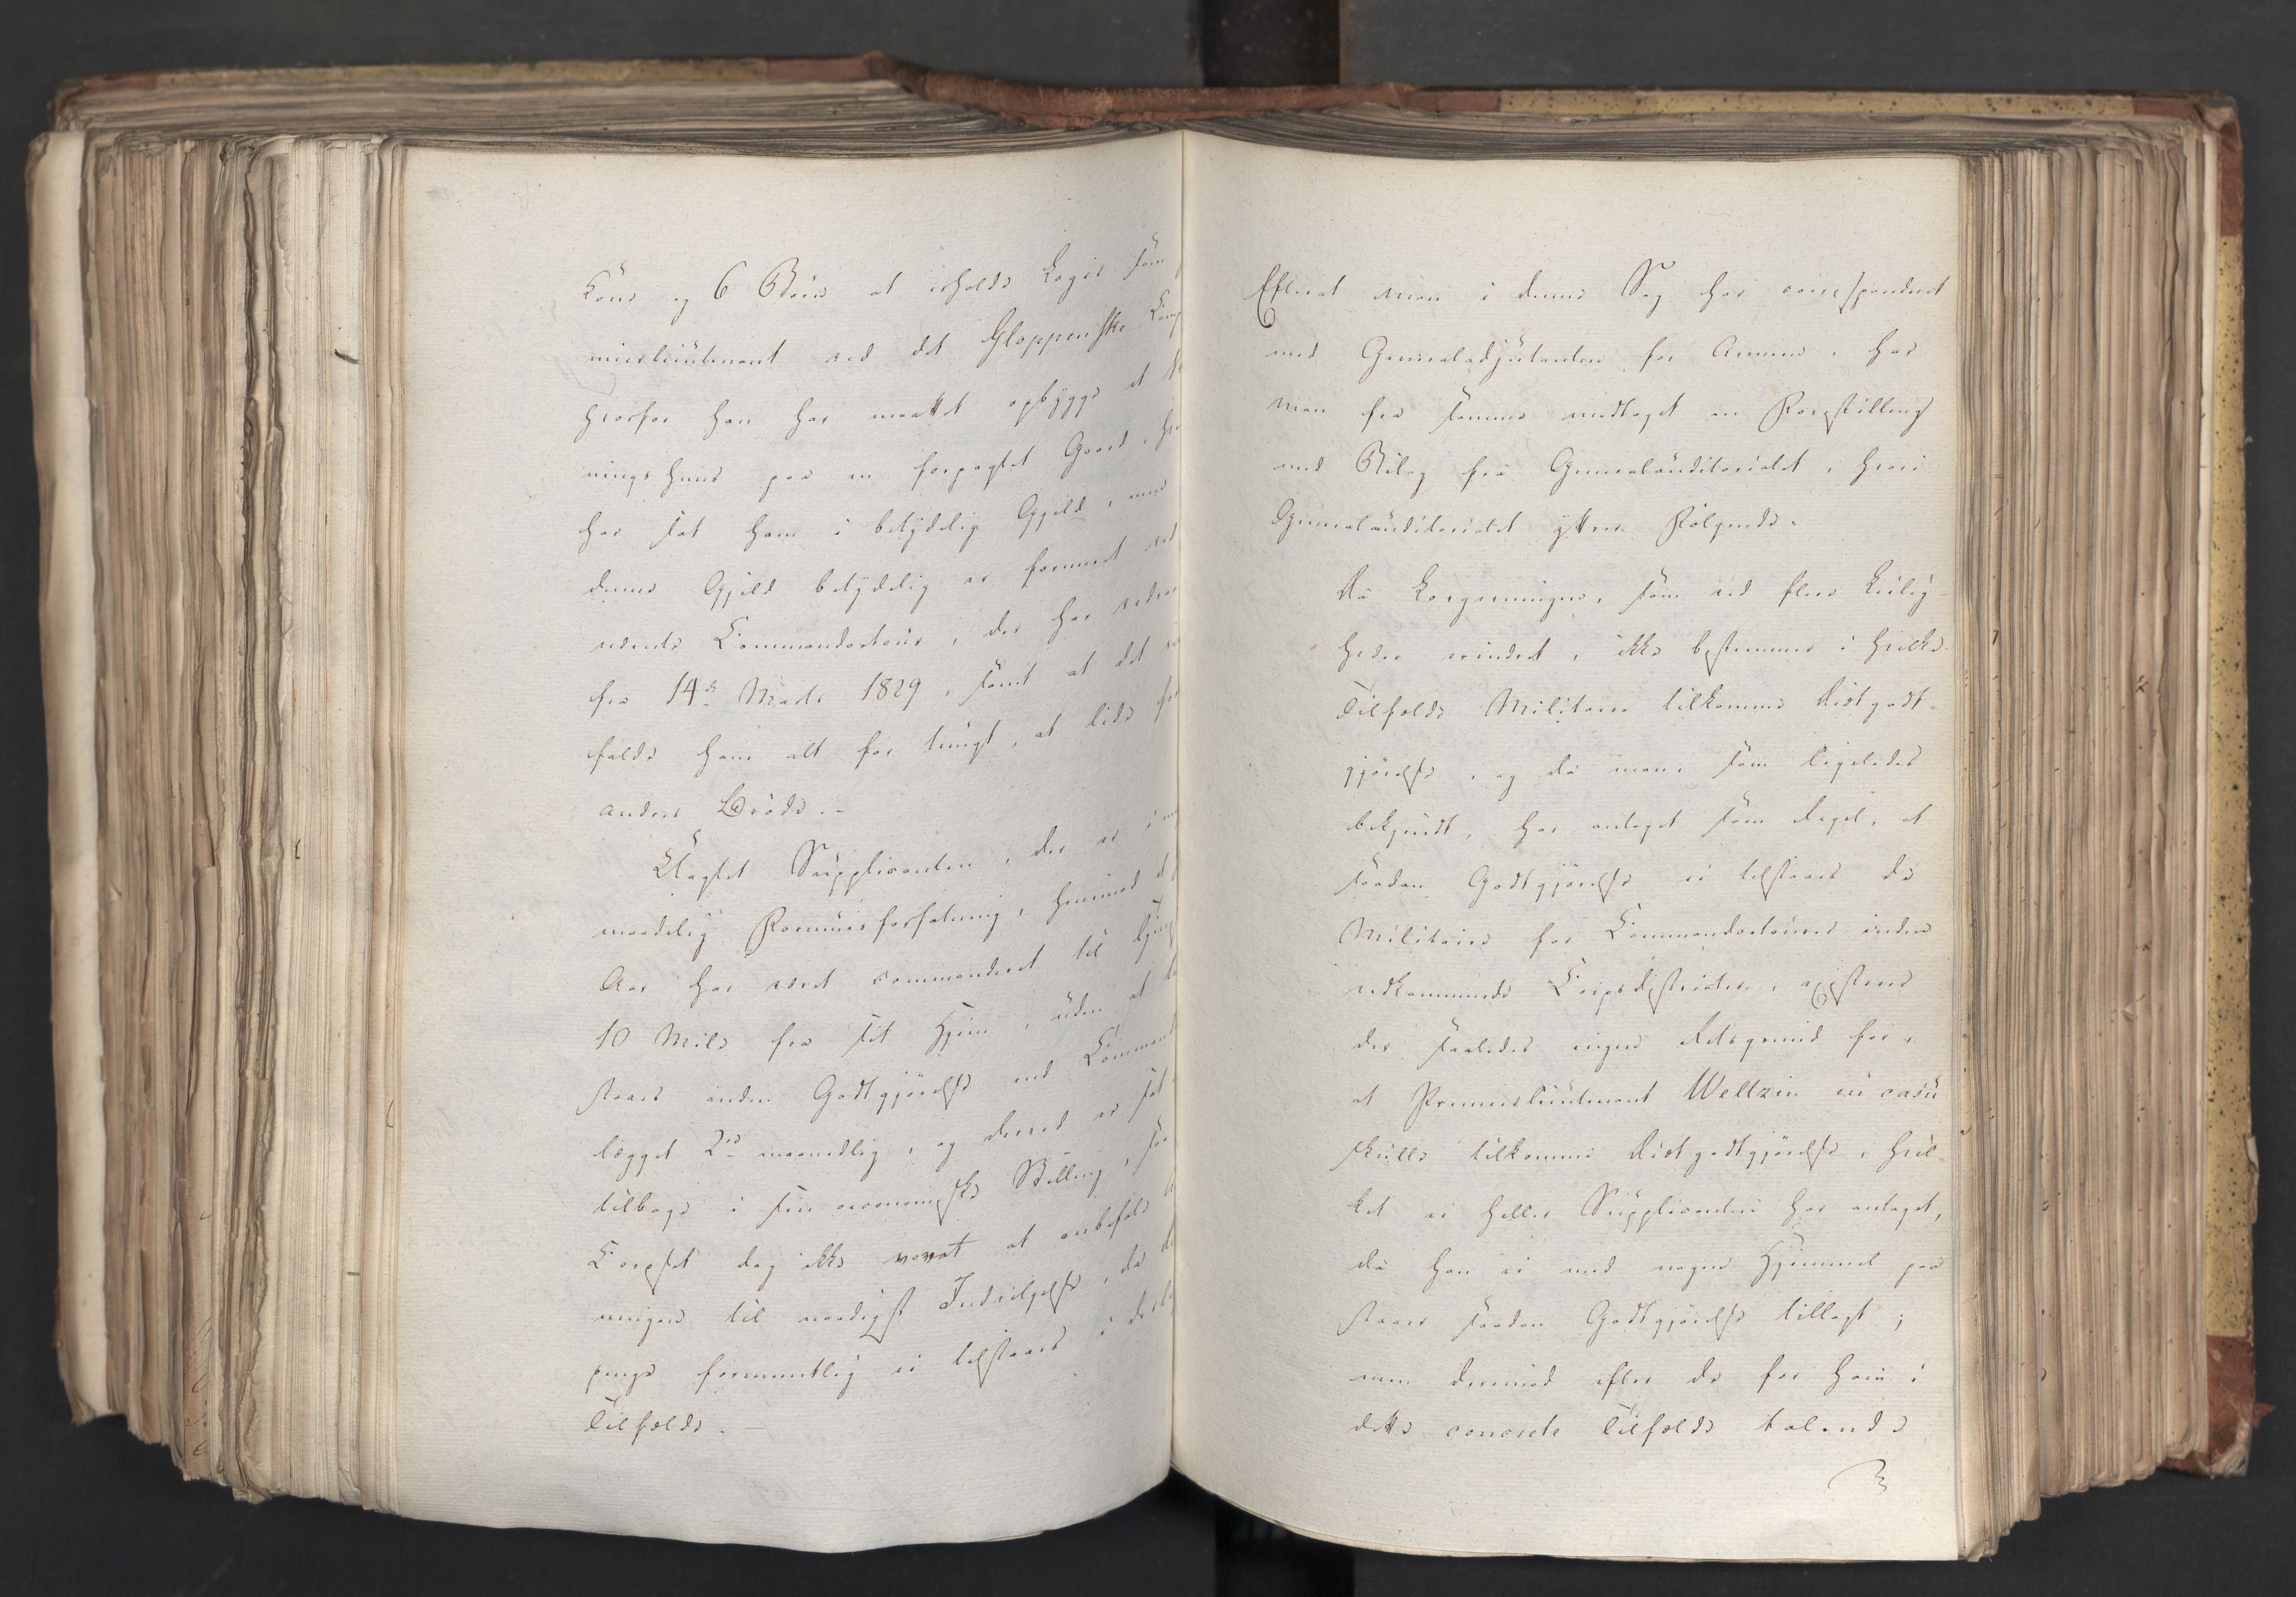 Kone og 6 Børn at erholde Logis som
mierlieutenant ved det Gloppenske Comp
hvorfor han har maattet opbygge et
ningshuus paa en forpagtet Gaard, hvi
har sat ham i betydelig Gjeld, men
denne Gjeld betydelig er forøget ved
værende Commandoetour, der har vedvar
fra 14de Marts 1829, samt at det vil
falde ham alt for tungt, at lide for
andres Brøde.-
Uagtet Supplicanten, der er i en
maadelig Formuesforfatning, henimod et
Aar har været commanderet til Tjen
10 Mile fra sit Hjem, uden at der
staaes anden Godtgjørelse end Command
lægget 2rd maanedlig, og derved er sat
tilbage i sin oeconomiske Stilling, saa
Corpset dog ikke vovet at anbefale
ningen til naadigst Indvilgelse, da
penge formeentlig ei tilstaaes i deslige
Tilfælde.-
Efterat man i denne Sag har corresponderet
med Generaladjutanten for Armeen, har
man fra samme modtaget en Forestilling
med Bilag fra Generalauditoriatet, hvori
Generalauditoriatet yttrer Følgende.
Da Lovgivningen, som ved flere Leilig-
heder erindret, ikke bestemmer i hvilke
Tilfælde Militaire tilkomme Diætgodt-
gjørelse, og da man, som ligeledes
bekjendt, har antaget som Regel, at
saadan Godtgjørelse ei tilstaaes de
Militaire for Commandoetourer inden
vedkommende Corpsdistricter, existerer
der saaledes ingen Retsgrund for,
at Premierlieutenant Weltzin in casu
skulle tilkomme Diætgodtgjørelse, hvil-
ket ei heller Supplicanten har antaget,
da han ei med nogen Hjemmel paa
staaer saadan Godtgjørelse tillagt;
men derimod efter de for ham i
dette concrete Tilfælde talende